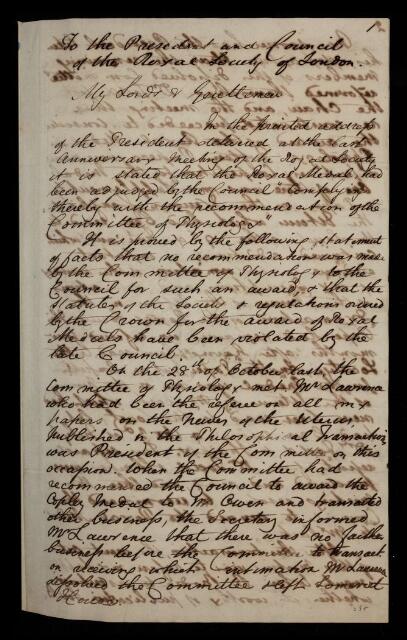 To the President and Council
of the Royal Society of London.
My Lords & Gentlemen
In the printed address
of the President delivered at the last
Anniversary Meeting of the Royal Society
it is stated that the Royal Medal had
been adjudged by the Council "conformably
thereby with the recommendation of the
Committee of Physiology"
It is proved by the following statement
of facts that no recommendation was made
by the Committee of Physiology to the
Council for such an award, & that the
Statutes of the Society & regulations
by the Crown for the award of Royal
Medals have been violated by the
late Council.
On the 28th of October last, the
Committee of Physiology met Mr Lawrence
who had been the referee on all my
papers on the Nerves of the Uterus
published in the Philosophical Transactions
was President of the Committee on this
occasion. When the Committee had
recommended the Council to award the
Copley Medal to Mr Owen and transacted
other business, the Secretary informed
Mr Lawrence that there was no further
business before the Committee to transact
on receiving which intimation Mr Lawrence
dissolved the Committee & left Somerset
House.